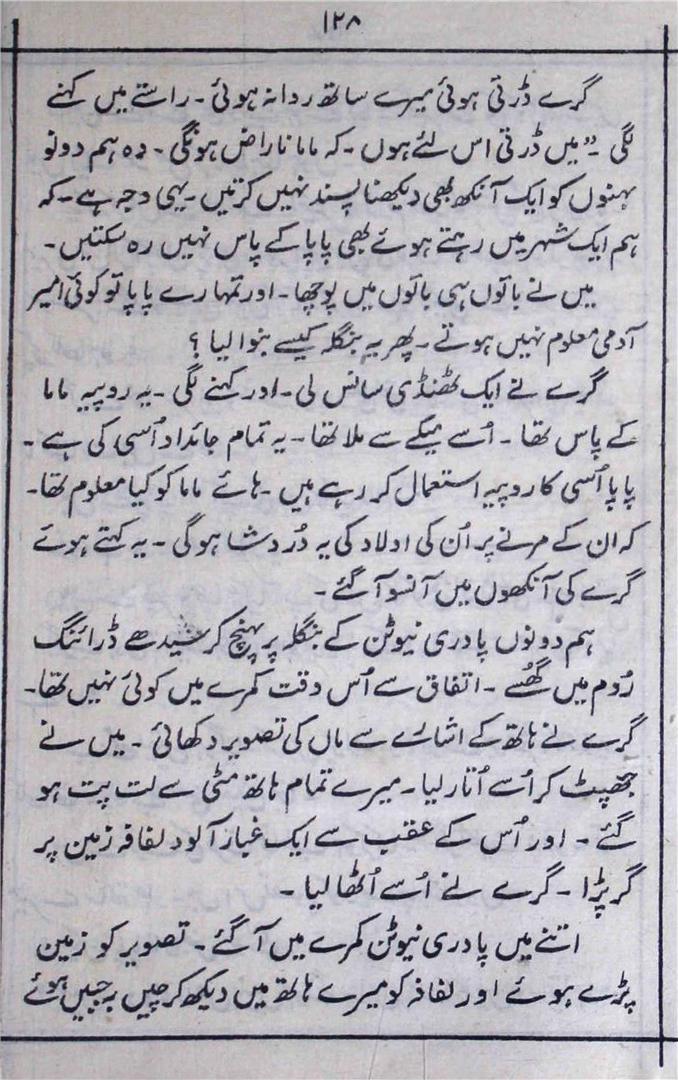 ۱۲۸
گرے ڈرتی ہوئی میرے ساتھ روانہ ہوئی ۔ راستے میں کہنے
لگی ۔ ”میں ڈرتی اس لئے ہوں ۔ کہ ماما ناراض ہونگی ۔ وہ ہم دونو
بہنوں کو ایک آنکھ بھی دیکھنا پسند نہیں کرتیں ۔ یہی وجہ ہے ۔ کہ
ہم ایک شہر میں رہتے ہوئے بھی پاپا کے پاس نہیں رہ سکتیں ۔
میں نے باتوں ہی باتوں میں پوچھا ۔ اور تمہارے پاپا تو کوئی امیر
آدمی معلوم نہیں ہوتے ۔ پھر یہ بنگلہ کیسے بنوالیا ؟
گرے نے ایک ٹھنڈی سانس لی ۔ اور کہنے لگی ۔ یہ روپیہ ماما
کے پاس تھا ۔ اُسے میکے سے ملا تھا ۔ یہ تمام جائداد اُسی کی ہے ۔
پاپا اُسی کا روپیہ استعمال کر رہے ہیں ۔ ہائے ماما کو کیا معلوم تھا ۔
کہ ان کے مرنے پر اُن کی اولاد کی یہ دُردشا ہوگی ۔ یہ کہتے ہوئے
گرے کی آنکھوں میں آنسو آگئے ۔
ہم دونوں پادری نیوٹن کے بنگلہ پر پہنچ کر سیدھے ڈرائنگ
رُوم میں گھُسے ۔ اتفاق سے اُس وقت کمرے میں کوئی نہیں تھا ۔
گرے نے ہاتھ کے اشارے سے ماں کی تصویر دکھائی ۔ میں نے
جھپٹ کر اُسے اُتار لیا ۔ میرے تمام ہاتھ مٹی سے لت پت ہو
گئے ۔ اور اُس کے عقب سے ایک غبار آلود لفافہ زمین پر
گر پڑا ۔ گرے نے اُسے اُٹھا لیا ۔
اتنے میں پادری نیوٹن کمرے میں آگئے ۔ تصویر کو زمین
پڑے ہوئے اور لفافہ کو میرے ہاتھ میں دیکھ کر چیں بہ جبیں ہوئے